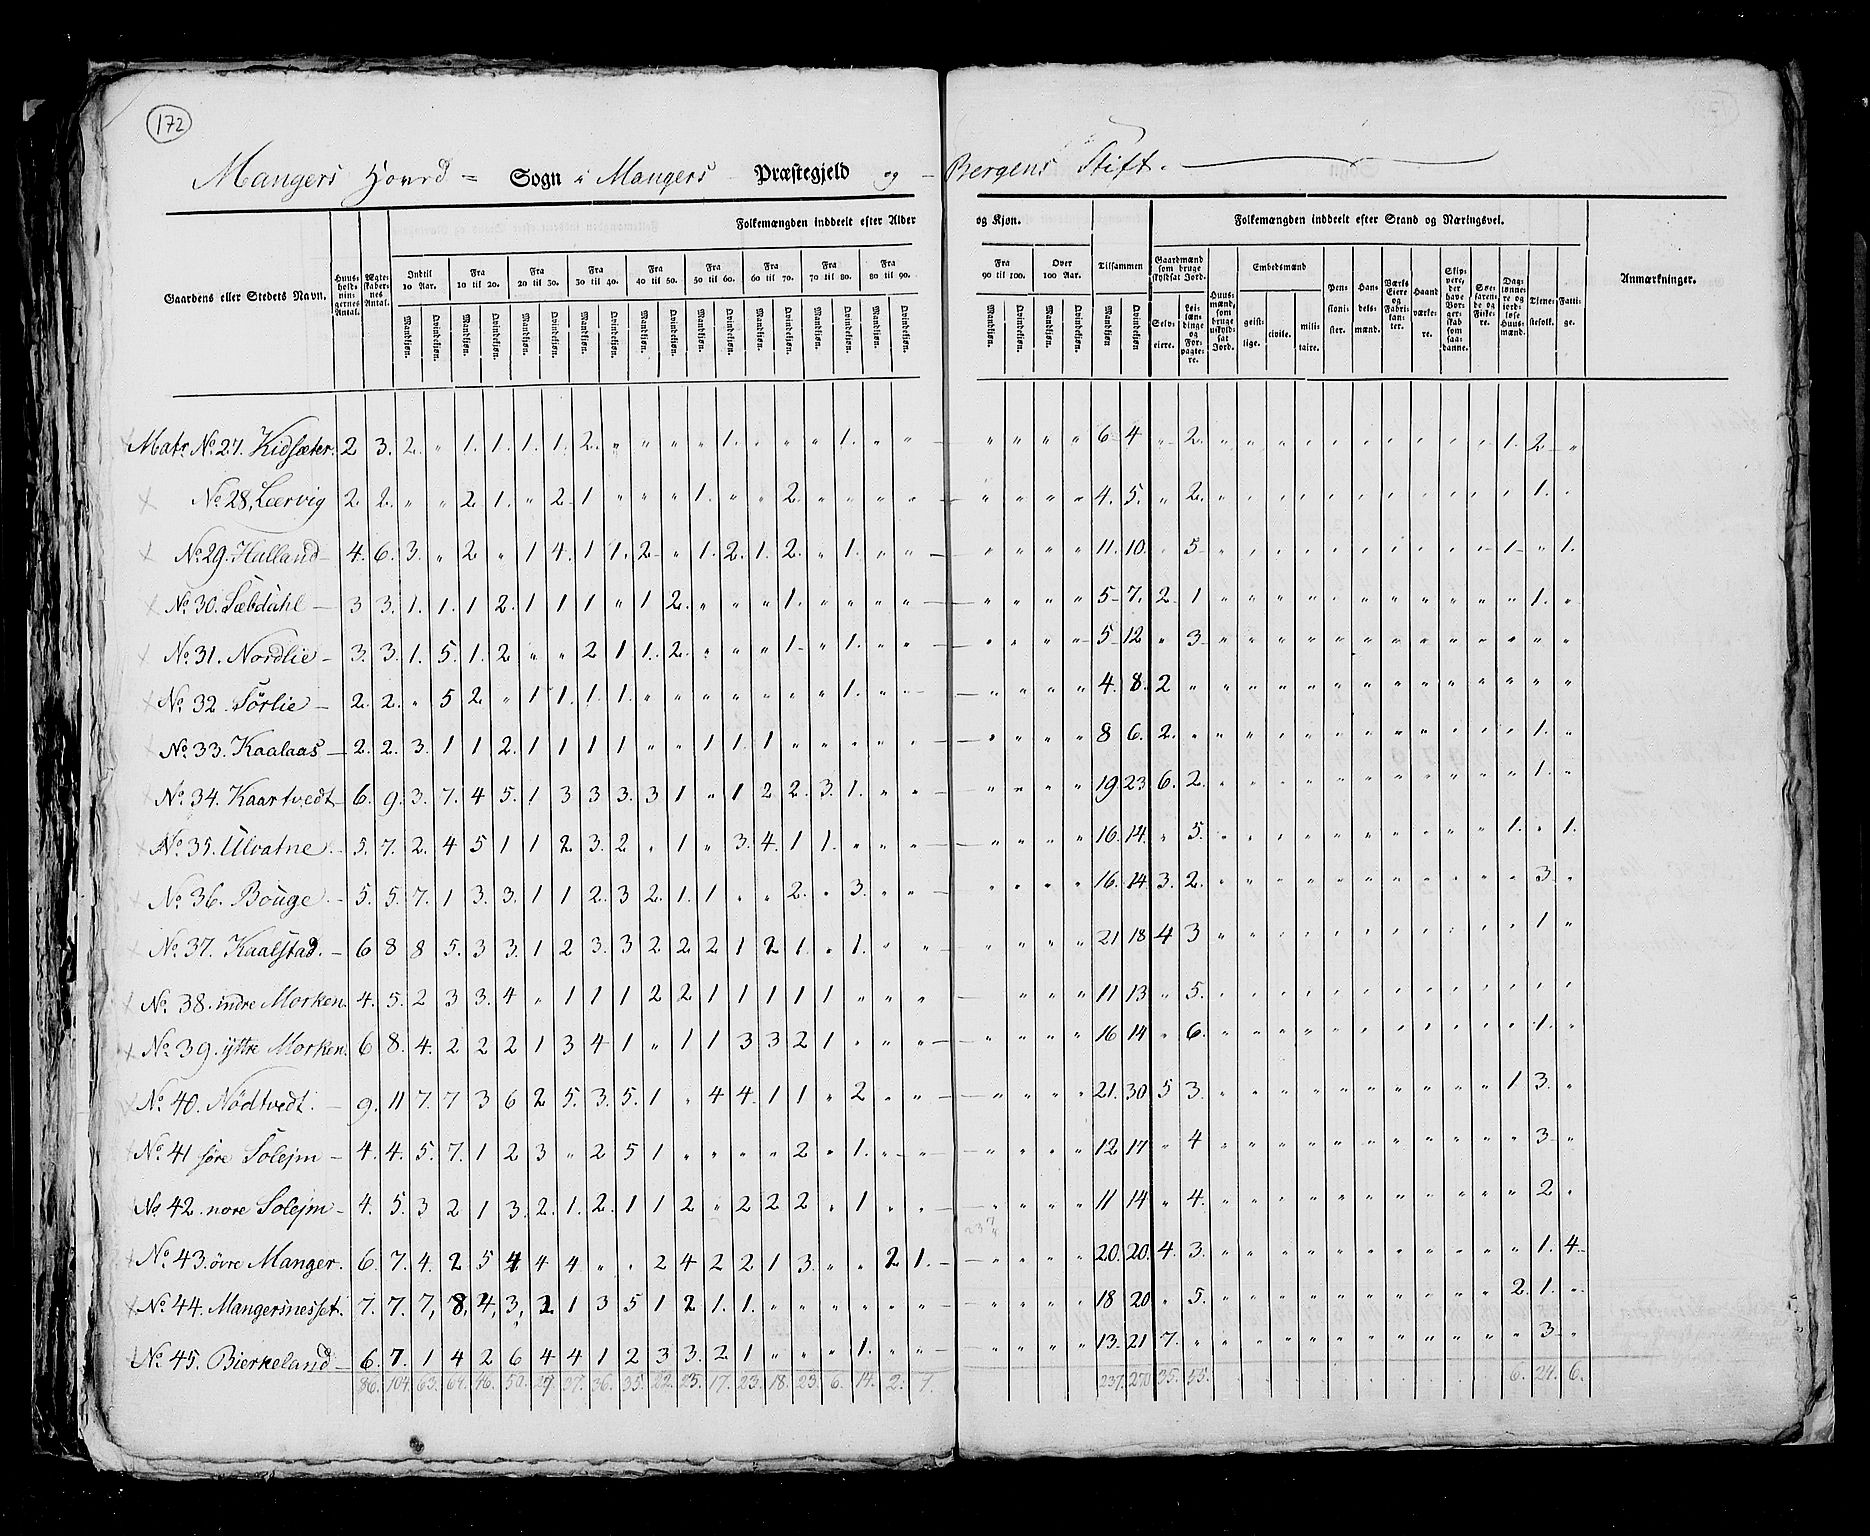 172
Mangers Hovrd = Sogn i Mangers Præstegjeld og Bergens Stift.
Folkemængden inddeelt efter Alder og Kjøn. Folkemængden inddeelt efter Stand og Næringsvei.
Gaardens eller Stedets Navn. Huusholdningernes Antal. Ægteskabernes Antal. Indtil 10 Aar. Fra 10 til 20. Fra 20 til 30. Fra 30 til 40. Fra 40 til 50. Fra 50 til 60. Fra 60 til 70. Fra 70 til 80. Fra 80 til 90. Fra 90 til 100. Over 100 Aar. Tilsammen Gaardmænd som bruge skyldsat Jord. Huusmænd, som bruge uskyldsat Jord. Embedsmænd Pensionister. Handelsmænd. Værks Eiere og Fabrikanter. Haandværkere. Skippere, der have Borgerskab som saadanne. Søefarende og Fiskere. Daglønnere og jordløse Huusmænd. Tjenestefolk. Fattige. Anmærkninger.
Mandkjøn. Qvindekjøn. Mandkjøn. Qvindekjøn. Mandkjøn. Qvindekjøn. Mandkjøn. Qvindekjøn. Mandkjøn. Qvindekjøn. Mandkjøn. Qvindekjøn. Mandkjøn. Qvindekjøn. Mandkjøn. Qvindekjøn. Mandkjøn. Qvindekjøn. Mandkjøn. Qvindekjøn. Mandkjøn. Qvindekjøn. Mandkjøn Qvindekjøn Selveiere. Leilændinge og Forpagtere. geistlige. civile. militaire.
Matr No 27. Kidsæter. 2 3. 2. " 1. 1. 1. 1. 2. " " " " 1. " " " 1. " " " " " " 6 4 " 2. " " " " " " " " " " 1. 2 "
No 28. Leervig 2. 2. " " 2 1. " 2 1 " " " 1. " " 2. " " " " " " " " 4. 5. " 2. " " " " " " " " " " " 1. "
No 29. Halland 4. 6. 3. " 2 " 1 4. 1 1. 2 " 1. 2. 1. 2. " 1. " " " " " " 11. 10. " 5 " " " " " " " " " " 1 " 1.
No 30. Sæbdahl 3 3. 1. 1. 1 2. 1 1 1 " 1 2. " " " 1. " " " " " " " " 5 7. 2. 1 " " " " " " " " " " " 1. "
No 31. Nordlie 3. 3. 1. 5. 1. 2 " " 2 1 1. 2. " " " 1 " 1. " " " " " " 5 12 " 3 " " " " " " " " " " " " "
No 32. Sørlie 2. 2. " 5 2 " 1 1. 1. 1. " " " " " " " 1. " " " " " " 4. 8. 2 " " " " " " " " " " " " " "
No 33. Kaalaas 2. 2. 3. 1 1 2. 1 1 1 1 " " 1 1. 1 " " " " " " " " " 8 6. 2. " " " " " " " " " " " " 1. "
No 34. Kaartvedt 6. 9. 3. 7. 4 5. 1 3 3 3. 3 1 " 1 2 2. 3. 1. " " " " " " 19 23 6. 2. " " " " " " " " " " " 1. "
No 35. Ulvatne. 5. 7. 2. 4 5 1 1 2. 3. 2 " 1 " 3. 4. 1 1. " " " " " " " 16. 14. " 5. " " " " " " " " " " 1. " 1.
No 36. Bouge. 5. 5. 7. 1 3. 3. 1 1 2. 3 2. 1. 1 " " 2. " 3. " " " " " " 16. 14. 3. 2. " " " " " " " " " " " 3 "
No 37. Kaalstad. 6 8 8 5. 3 3. 1 2 3. 3 2 2 2 1 2 1. " 1. " " " " " " 21 18 4 3 " " " " " " " " " " " 1 "
No 38. indre Morken. 4. 5. 2 3 3. 4 " 1 1 1 2 2 1 1 1 1 1 " " " " " " " 11 13 " 5. " " " " " " " " " " " " "
No 39. yttre Morken. 6 8. 4. 2 2 2 1 3 4 1 " 1 1 3 3 2 1 " " " " " " " 16 14 " 6. " " " " " " " " " " " 1. "
No 40. Nødtvedt. 9. 11 7. 7 3 6 2 5. 3. 5. 1 " 4 4. 1 1 " 2 " " " " " " 21. 30 5 3. " " " " " " " " " " 1 3. "
No 41 søre Solejm 4. 4. 5. 7. 1 2 3 " 2 5 1 " " " " 2 " 1. " " " " " " 12 17 " 4 " " " " " " " " " " " 3 "
No 42. nore Solejm 4. 5. 3 2 1 3. 2. 1. 2. 1 1 2 " 2 2 2 " 1 " " " " " " 11 14 " 4. " " " " " " " " " " " 2 "
No 43. øvre Manger. 6. 7. 4. 2 5 4 4 4 " " 2 4 2 2 1 3. " " 2 1. " " " " 20. 20. 4. 3. " " " " " " " " " " " 1. 4
No 44. Mangersnesset. 7. 7. 7, 8, 4, 3, 2 1 3 5 1 2 1. 1. " " " " " " " " " " 18 20 " 5. " " " " " " " " " " 2. 1. "
No 45. Bierkeland 6. 7. 1 4 2 6 4 4 1 2 3 3. 2 1 " " " 1. " " " " " " 13. 21 7. " " " " " " " " " " " " 3 "
86. 104. 63. 64. 46. 50. 29. 37. 36. 35. 22. 25. 17. 23. 18. 23. 6. 14. 2. 1. 237. 270 35. 55. 6. 24. 6.